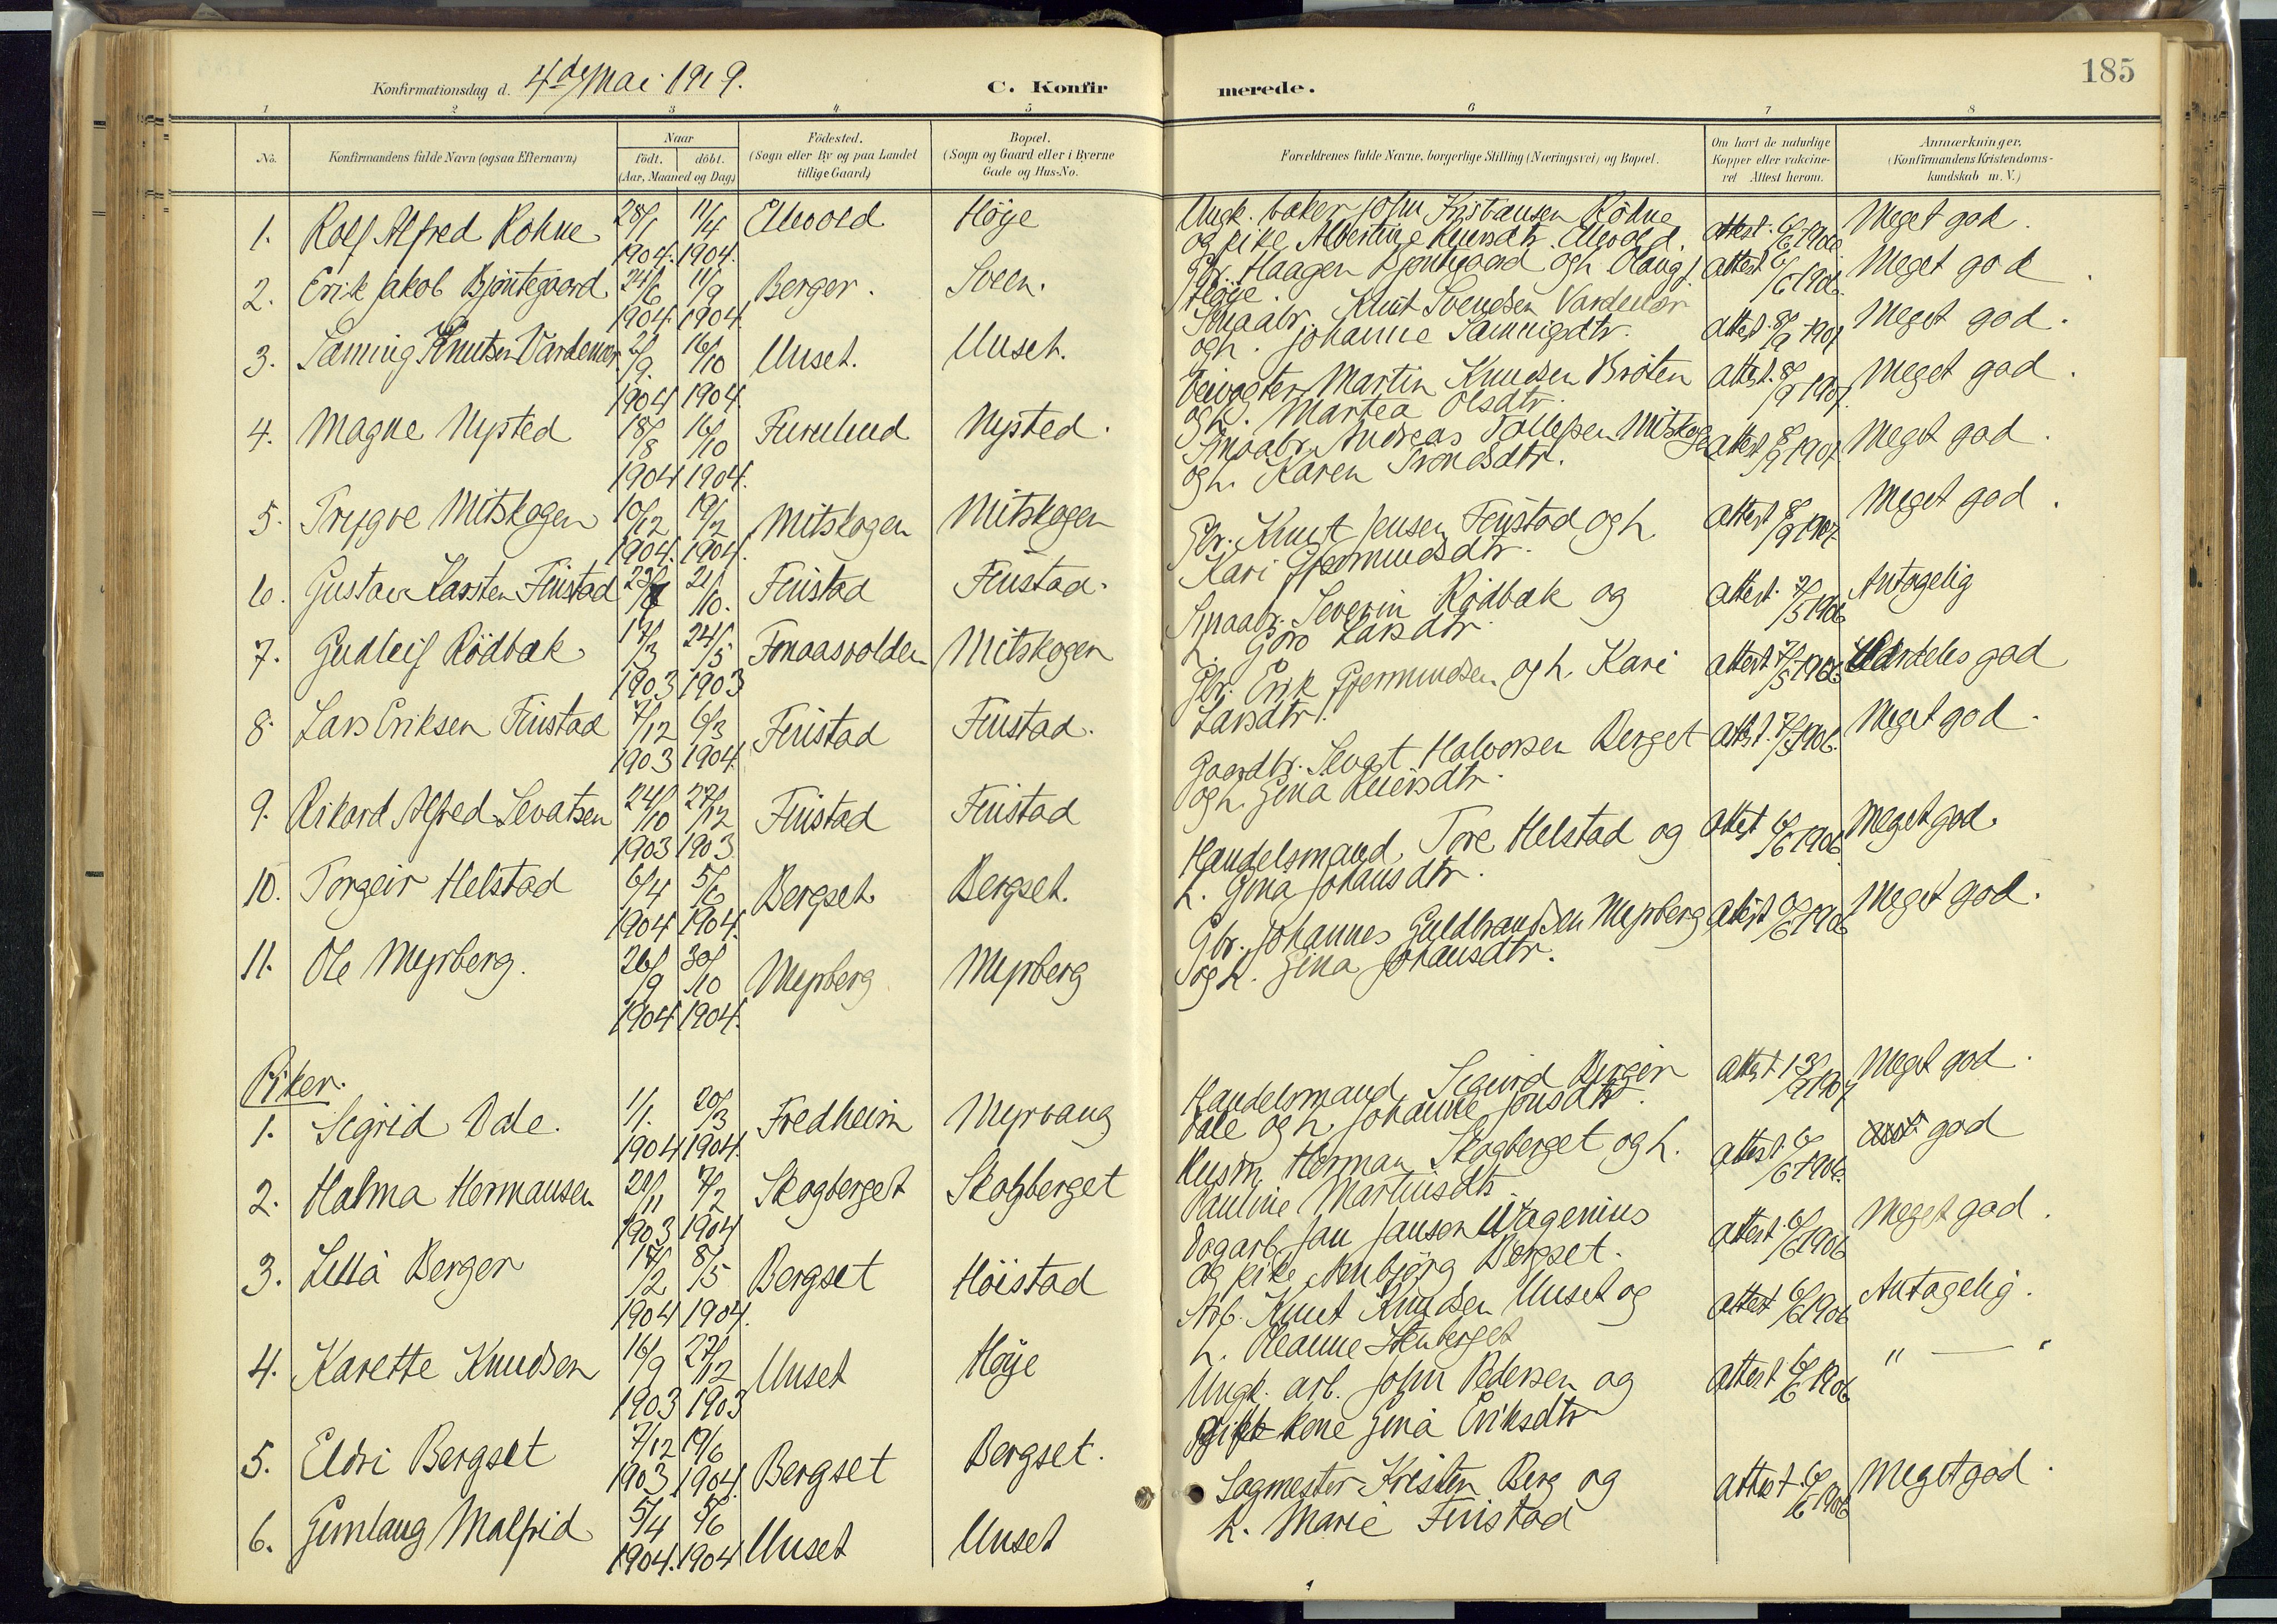 185
Konfirmationsdag d. 4de Mai 1919.
C. Konfirmerede.
1 2 3 4 5 6 7 8
No.
Konfirmandens fulde Navn (ogsaa Efternavn)
Naar
født. døbt.
(Aar, Maaned og Dag)
Fødested.
(Sogn eller By og paa Landet
tillige Gaard)
Bopæl.
(Sogn og Gaard eller i Byerne
Gade og Hus-No.
Forældrenes fulde Navne, borgerlige Stilling (Næringsvei) og Bopæl.
Om havt de naturlige
Kopper eller vakcine-
ret Attest herom.
Anmærkninger.
(Konfirmandens Kristendoms-
kundskab m. V.)
1. Rolf Alfred Rohne 28/1 1904. 11/4 1904. Ellevold Höye
Ungk. baker John Kristiansen Röhne
og pike Albertine Knudsdtr. Ellevold.
attest 6/6 1906 Meget god.
2. Erik Jakob Bjøntegaard 24/6 1904. 11/9 1904. Berger. Sveen.
Gbr. Haagen Bjøntegaard og h. Olaug J.
Höye.
attest 6/6 1906. Meget god.
3. Lamming Knutsen Vardemoer 2/9. 1904 16/10 1904. Uuset. Uuset.
Smaabr. Knut Svendsen Vardemoer
og h. Johanne Lamnigdtr.
attest 8/9 1907 Meget god.
4. Magne Nysted 18/8 1904 16/10 1904. Furulund Nysted.
Veivogter Martin Knudsen Bröten
og h. Martea Olsdtr.
attest. 8/9 1907. Meget god.
5. Trygve Mitskogen 10/12 1904. 19/2 1904. Mitskogen Mitskogen
Smaabr. Andreas Tollefsen Mitskogen
og h. Karen Trondsdtr.
attest 8/9 1907. Meget god.
6. Gustav Karsten Finstad 23/8 1904 21/10. Finstad Finstad.
Gbr. Knut Jensen Finstad og h.
Kari Gjermundsdtr.
attest 8/9 1907. Meget god.
7. Gudleif Rödbæk 17/3 1903 24/5 1903 Fonaasvolden Mitskogen
Smaabr. Severin Rödbæk og
h. Goro Larsdtr.
attest. 7/5 1906 Antagelig
8. Lars Eriksen Finstad 7/12 1903 6/3 1904. Finstad Finstad.
Gbr. Erik Gjermundsen og h. Kari
Larsdtr.
attest 7/5 1906 Særdeles god
9. Rikard Alfred Sevatsen 24/10 1903 27/12 1903. Finstad Finstad
Gaardbr. Sevat Halvorsen Berget
og h. Gina Reiersdtr.
attest. 7/5 1906. Meget god.
10. Torgeir Helstad 6/4 1904 5/6 1904. Bergset Bergset.
Handelsmand Tore Helstad og
h. Gina Johansdtr.
attest 6/6 1906. Meget god.
11. Ole Myrberg. 26/9 1904 30/10 1904. Myrberg Myrberg
Gbr. Johannes Guldbrandsen Myrberg
og h. Gina Johansdtr.
attest 6/6 1906 Meget god.
Piker.
1. Sigrid Dale. 1/1. 1904 20/3 1904. Fredheim Myrvang
Handelsmand Sigurd Berger
Dale og h. Johanne Jonsdtr.
attest 13/9 1907 Meget god.
2. Halma Hermansen 21/11 1903 7/2 1904 Skogberget Skogberget
Husm. Herman Skogberget og h.
Pauline Martinsdtr
attest. 6/6 1906. god
3. Lella Berger 17/2 1904 8/5 1904. Bergset Höistad
Dagarb. Jan Jansen Wagenius
og pike Anbjörg Bergset.
attest. 6/6 1906 Meget god.
4. Karette Knudsen 16/9 1903 27/12 1903 Uuset Höye
Arb. Knut Knudsen Uuset og
h. Oleanne Stenberget
attest 6/6 1906 Antagelig.
5. Eldri Bergset 7/12 1903 19/6 1904. Bergset Bergset.
Ungk. arb. John Pedersen og
pike kone Gina Eriksdtr
attest 6/6 1906 " — "
6. Gunlaug Malfrid 5/4 1904. 5/6 1904 Uuset Uuset
Sagmester Kristen Berg og
h. Marie Finstad
attest. 6/6 1906 Meget god.